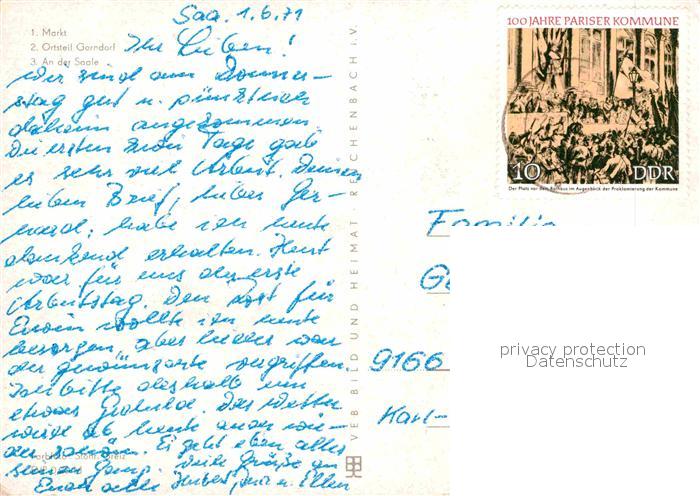 Saa. 1.6.71
1. Markt
2. Ortsteil Gorndorf
3. An der Saale
Ihr Lieben!
Wir sind am Donners-
tag gut u. pünktlich
daheim angekommen.
Die ersten zwei Tage gab
es sehr viel Arbeit. Deinen
lieben Brief, lieber Ger-
hard, habe ich heute
dankend erhalten. Heut
war für uns der erste
Arbeitstag. Den für
Erwin wollte ich heute
besorgen, aber leider war
der gewünschte vergriffen.
Ich bitte deshalb um
etwas Geduld. Das Wetter
wird ab heute wie-
der schön. Es geht eben alles
seinen Gang. Viele Grüße an
Euch alle Hubert, u. Ellen
VEB BILD UND HEIMAT REICHENBACH i.V.
100 JAHRE PARISER KOMMUNE
10 DDR
Der Platz vor dem Rathaus im Augenblick der Proklamierung der Kommune
Familie
G
9166
Karl-
privacy protection
Datenschutz